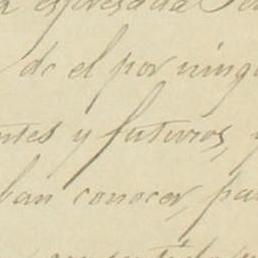 espresada
de el por ning
ntes y futuros, y
ban conocer, pa